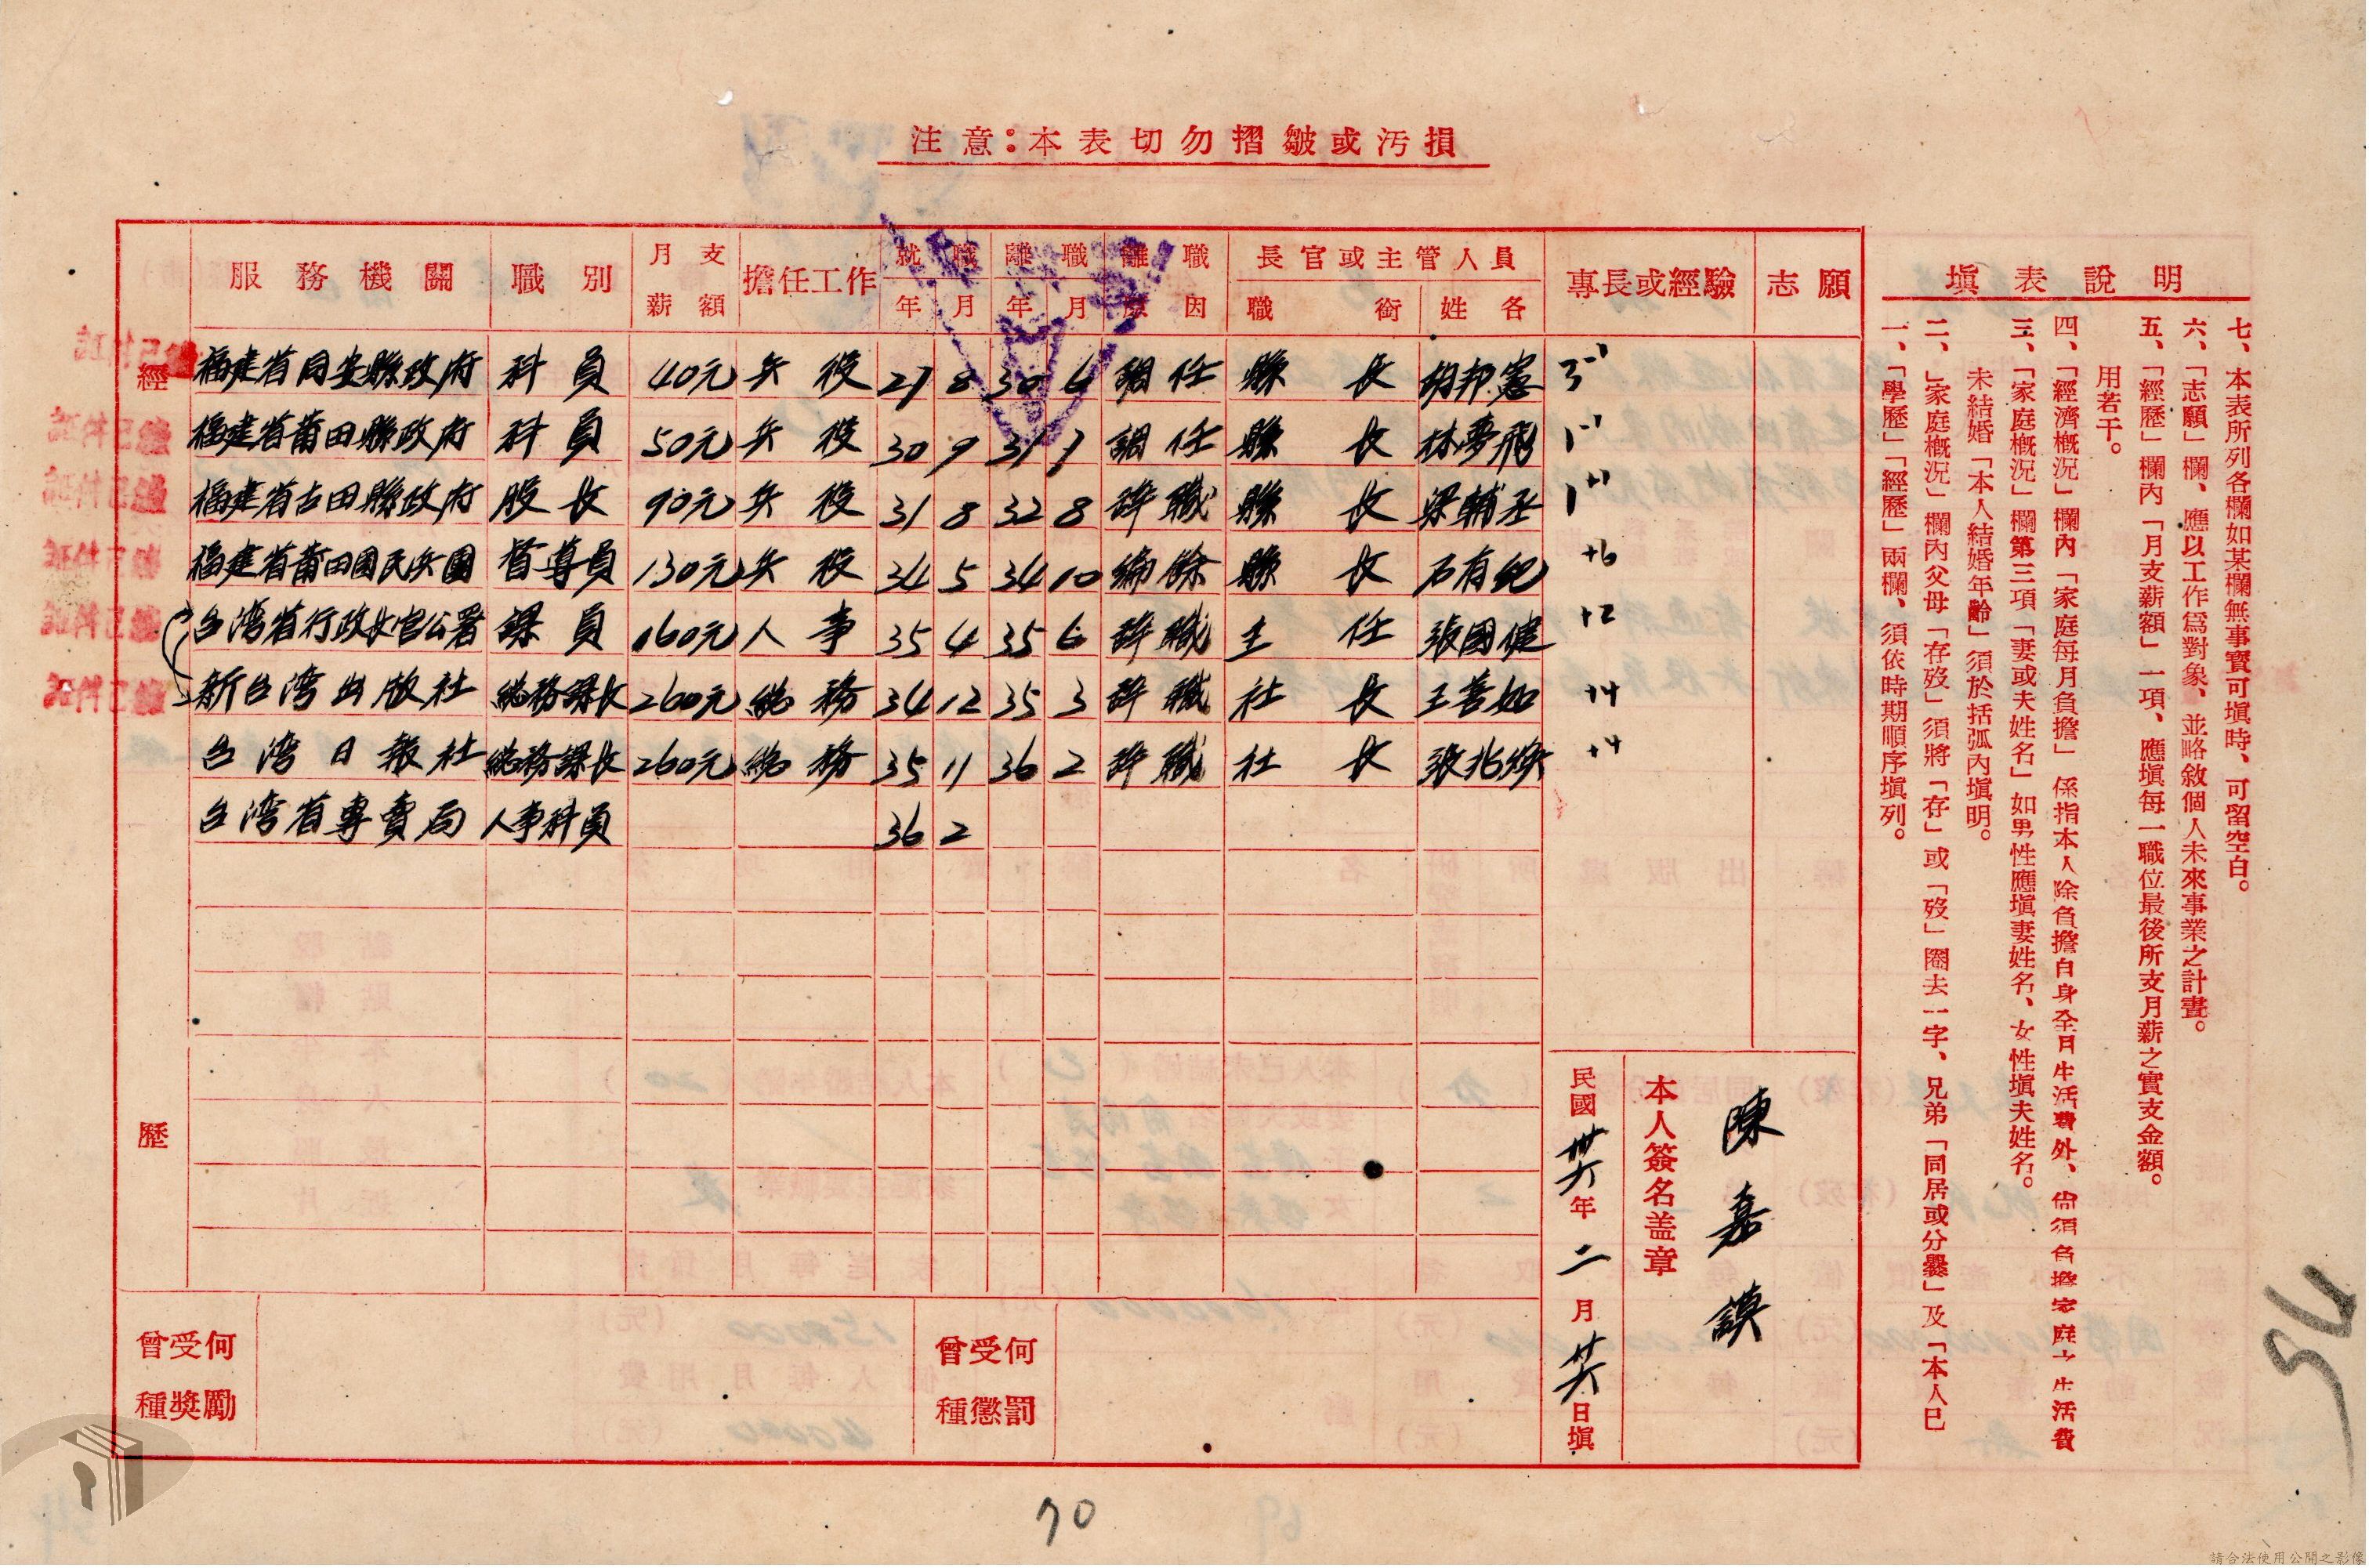 注意：本表切勿摺皺或汚損
經歷
服務機關 職別 月支薪額 擔任工作 就職年月 離職年月 離職原因 長官或主管人員 職銜 姓名 專長或經驗 志願
福建省同安縣政府 科員 40元 兵役 27 8 30 6 調任 縣長 胡邦憲
福建省莆田縣政府 科員 50元 兵役 30 9 31 7 調任 縣長 林夢飛
福建省古田縣政府 股長 90元 兵役 31 8 32 8 辞職 縣長 梁輔丞
福建省莆田國民兵團 督導員 130元 兵役 34 5 34 10 編餘 縣長 石有紀 +6
台湾省行政長官公署 課員 160元 人事 35 4 35 6 辞職 主任 張國健 +2
新台湾出版社 總務課長 260元 總務 34 12 35 3 辞職 社長 王善如 +4
台湾日報社 總務課長 260元 總務 35 11 36 2 辞職 社長 張兆煥 +4
台湾省專賣局 人事科員 36 2
曾受何種獎勵
曾受何種懲罰
本人簽名盖章
陳嘉謨
民國卅六年二月廿六日填
填表說明
一、「學歷」「經歷」兩欄、須依時期順序填列。
二、」家庭槪況」欄內父母「存歿」須將「存」或「歿」圈去一字、兄弟「同居或分爨」及「本人已
未結婚「本人結婚年齡」須於括弧內填明。
三、「家庭槪況」欄第三項「妻或夫姓名」如男性應填妻姓名、女性填夫姓名。
四、「經濟槪況」欄內「家庭每月負擔」係指本人除負擔自身全月生活費外、尙須負擔家庭之生活費
用若干。
五、「經歷」欄內「月支薪額」一項、應填每一職位最後所支月薪之實支金額。
六、「志願」欄、應以工作爲對象、並略敘個人未來事業之計畫。
七、本表所列各欄如某欄無事實可填時、可留空白。
70
請合法使用公開之影像